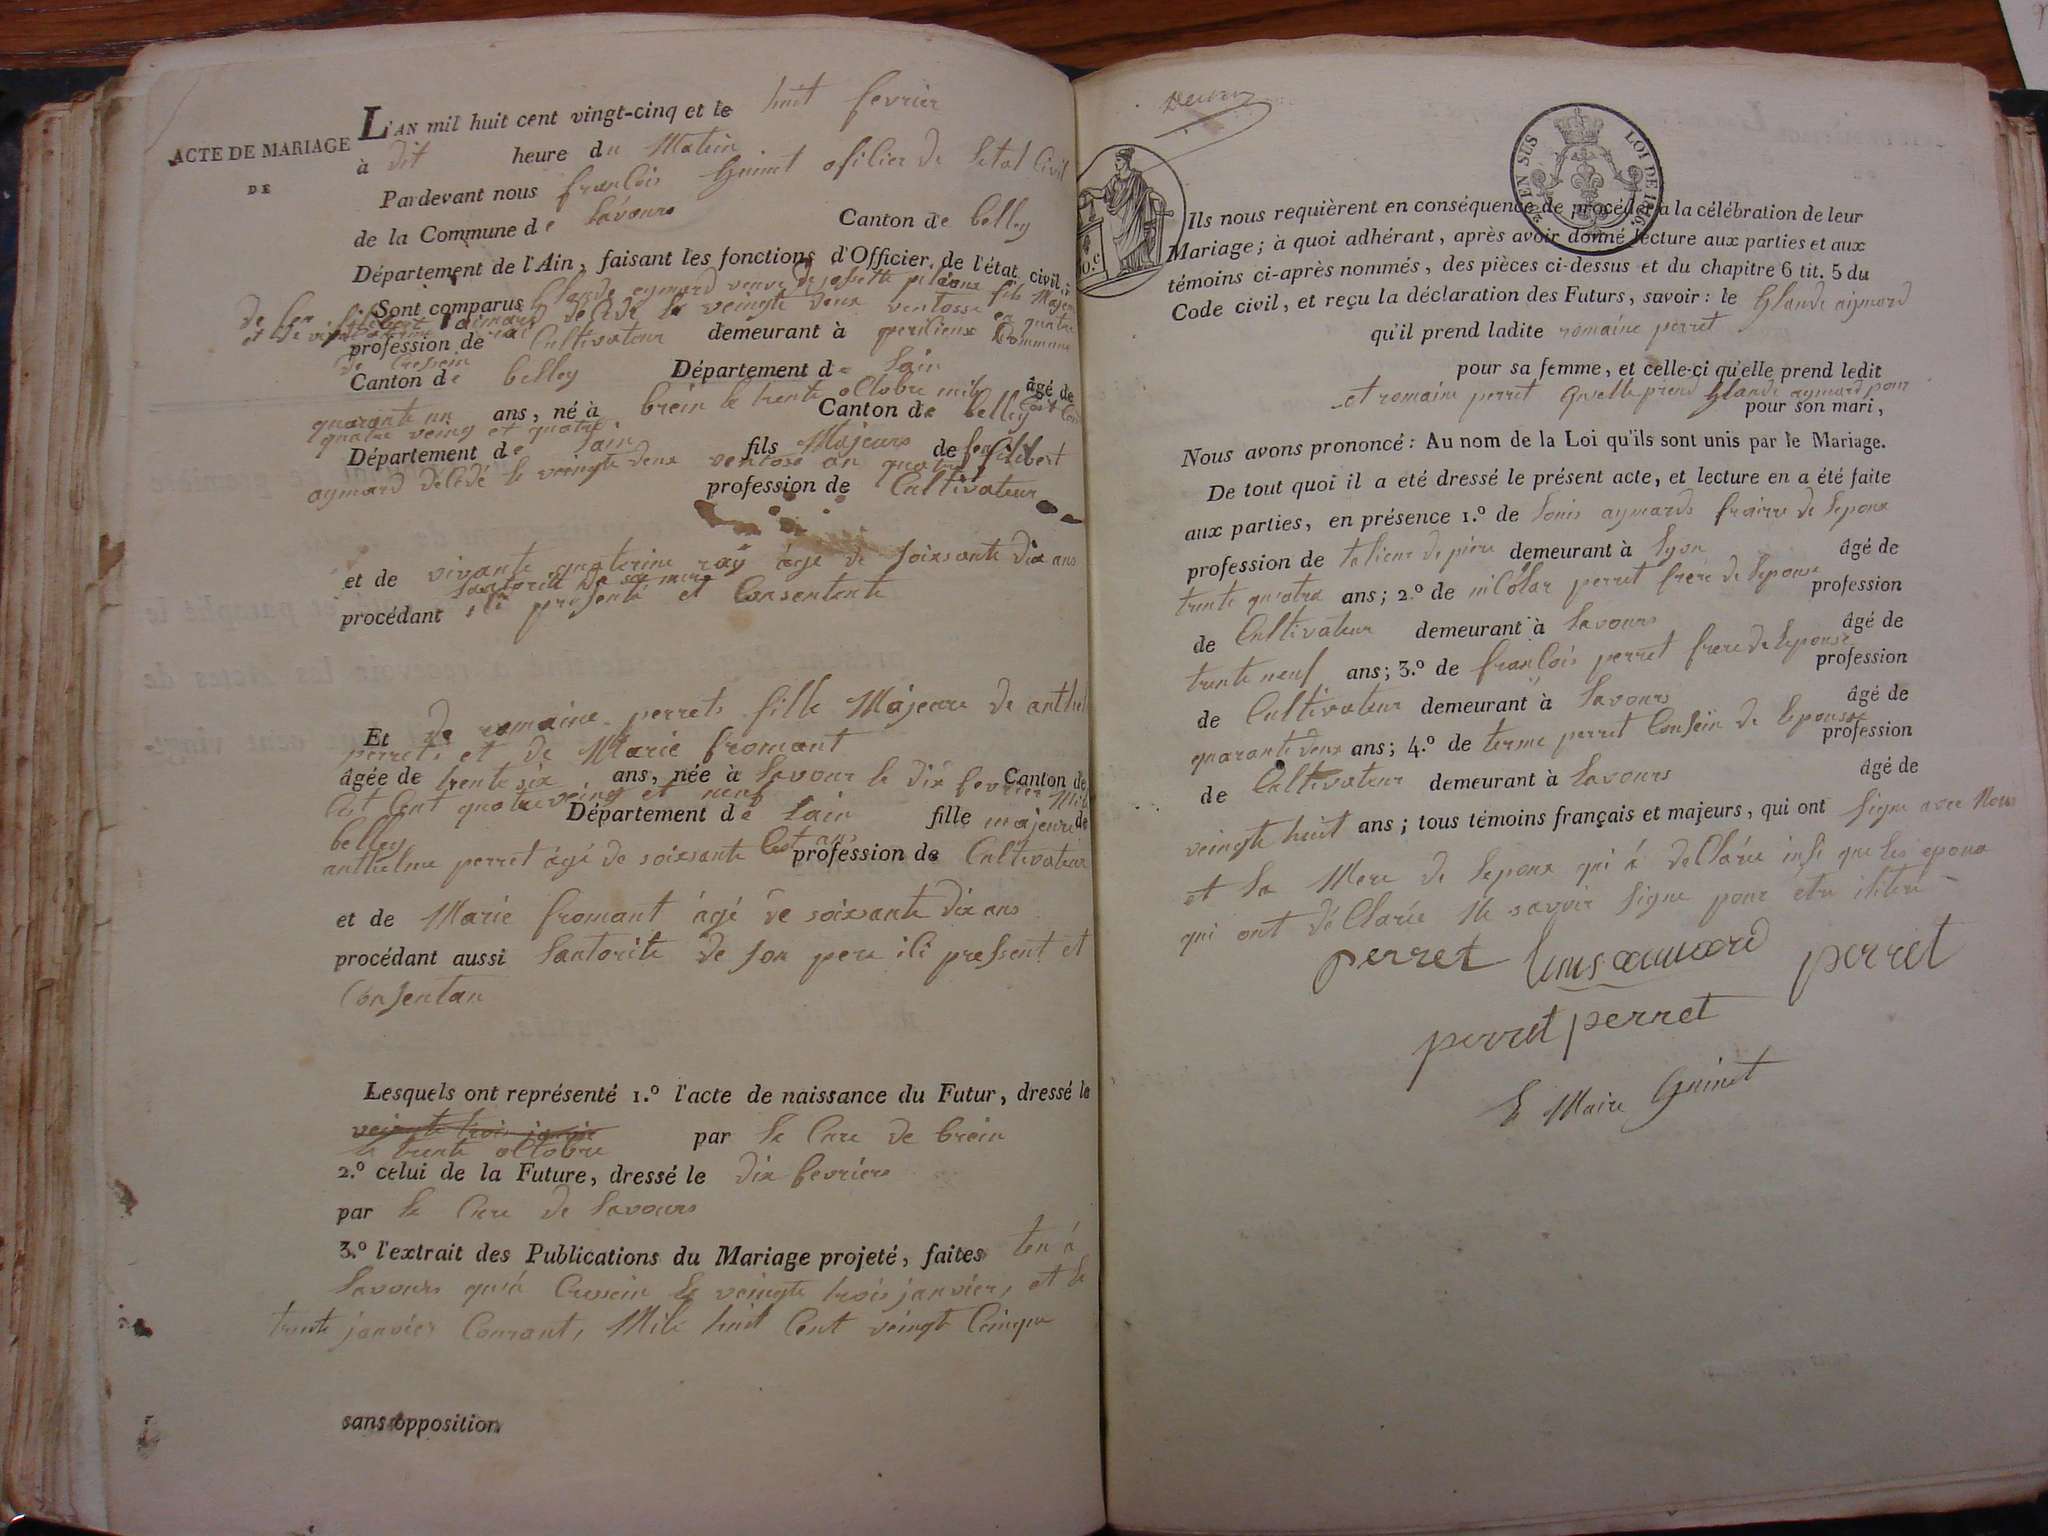 ACTE DE MARIAGE
DE
L'AN mil huit cent vingt-cinq et le huit fevrier
à dit heure du Matin
Pardevant nous françois Guinet ofilier de letat Civil
de la Commune de Lavours Canton de belley
Département de l'Ain, faisant les fonctions d'Officier de l'état civil,
Sont comparus Glaude aymard veuve de josette fils Majeur
de feu filibert aimard décédé le veingte deux ventosse en quatre
profession de Cultivateur demeurant à Commune
de Cressein
Canton de belley Département de Lain âgé de
quarante un ans, né à brein le trente octobre mil
quatre veing et quatre Canton de belley
Département de Lain fils Majeurs de feu filibert
aymard décédé le veingte deux ventose an quatre
profession de Cultivateur
et de vivante quaterine ray âgé de soixsante dix ans
procédant lautorité de sa mere
ili presente et Consentente
Et de romaine perrets fille Majeure de anthel
perret et de Marie fromant
âgée de trente six ans, née à Lavour le dix fevrier Mil
Cet Cent quatre veing et neuf Canton de
belley Département de Lain fille majeure de
anthelme perret âgé de soixsante Cet ans profession de Cultivateur
et de Marie fromant âgé de soixsante dix ans
procédant aussi lautorite de son pere ili pressent et
Consentan
Lesquels ont représenté 1.º l'acte de naissance du Futur, dressé le
veingte trois janvie
le trente octobre par le Cure de brein
2.º celui de la Future, dressé le dix fevriers
par le Cure de Lavours
3.º l'extrait des Publications du Mariage projeté, faites ten à
Lavours qu'à Cressein le veingte trois janvier, et le
trente janvier Courant, Mile huit Cent veingt Cinque
sans opposition
EN SUS
LOI DE 1816
Ils nous requièrent en conséquence de procéder à la célébration de leur
Mariage ; à quoi adhérant, après avoir donné lecture aux parties et aux
témoins ci-après nommés, des pièces ci-dessus et du chapitre 6 tit. 5 du
Code civil, et reçu la déclaration des Futurs, savoir : le Glaude aymard
qu'il prend ladite romaine perret
pour sa femme, et celle-ci qu'elle prend ledit
et romaine perret quelle prend Glaude aymard pour
pour son mari,
Nous avons prononcé : Au nom de la Loi qu'ils sont unis par le Mariage.
De tout quoi il a eté dressé le présent acte, et lecture en a été faite
aux parties, en présence 1.º de Louis aymards fraire de lepoux
profession de talieur de piere demeurant à Lyon âgé de
trente quatre ans ; 2.º de nicolas perret frere de lepouse profession
de Cultivateur demeurant à Lavours âgé de
trente neuf ans ; 3.º de françois perret frere de lepouse profession
de Cultivateur demeurant à Lavours âgé de
quarante deux ans ; 4.º de terme perret Consein de lepouse profession
de Cultivateur demeurant à Lavours âgé de
veingte huit ans ; tous témoins français et majeurs, qui ont signe avec Nous
et la Mere de lepoux qui à deClarée insi que les epoux
qui ont déClarée ne savoir signe pour etre ilitere
perret Louis aymard perret
perret perret
le Maire Guinet